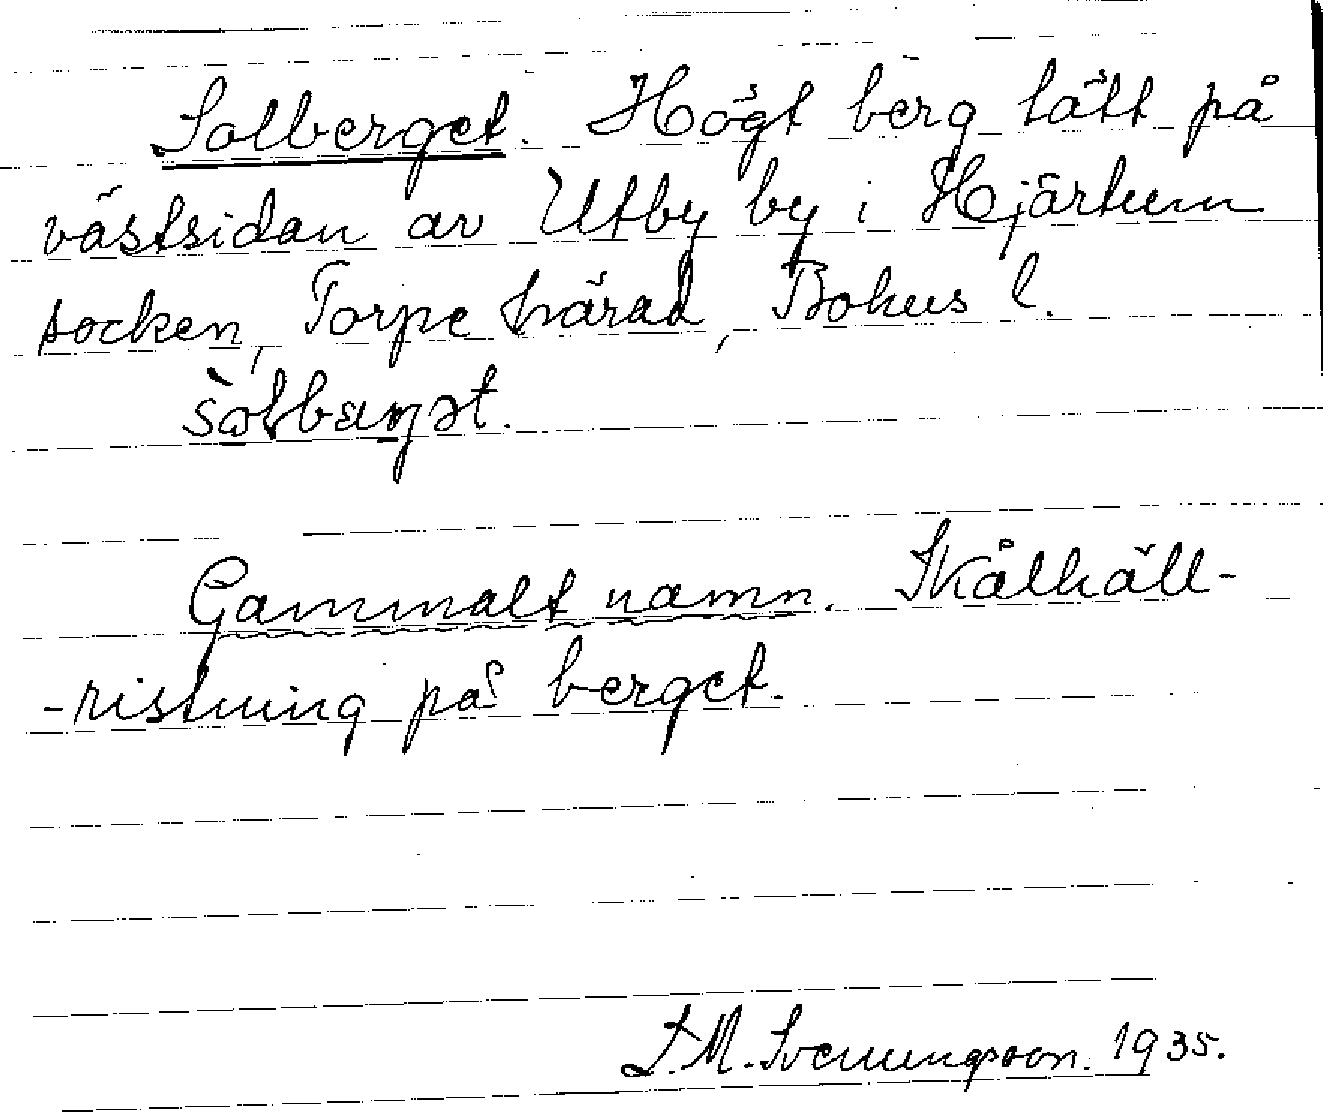 Solberget. Högt berg tätt på
västsidan av Utby by i Hjärtum
socken, Torpe härad, Bohus l.
Gammalt namn. Skålhäll-
-ristning på berget.
L.M. Svenungsson. 1935.